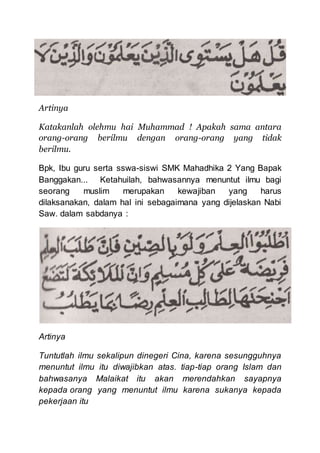 قُلْ هَلْ يَسْتَوِى الَّذِيْنَ يَعْلَمُوْنَ وَالَّذِيْنَ لَا
يَعْلَمُوْنَ
Artinya
Katakanlah olehmu hai Muhammad ! Apakah sama antara
orang-orang berilmu dengan orang-orang yang tidak
berilmu.
Bpk, Ibu guru serta sswa-siswi SMK Mahadhika 2 Yang Bapak
Banggakan... Ketahuilah, bahwasannya menuntut ilmu bagi
seorang muslim merupakan kewajiban yang harus
dilaksanakan, dalam hal ini sebagaimana yang dijelaskan Nabi
Saw. dalam sabdanya :
اُطْلُبُوا الْعِلْمَ وَلَوْ بِالصِّيْنِ فَاِنَّ طَلَبَ الْعِلْمِ
فَرِيْضَةٌ عَلَى كُلِّ مُسْلِمٍ وَاِنَّ الْمَلَائِكَةَ لَتَضَعُ
اَجْنِحَتَهَا لِطَالِبِ الْعِلْمِ رِضًا بِمَا يَطْلُبُ
Artinya
Tuntutlah ilmu sekalipun dinegeri Cina, karena sesungguhnya
menuntut ilmu itu diwajibkan atas. tiap-tiap orang Islam dan
bahwasanya Malaikat itu akan merendahkan sayapnya
kepada orang yang menuntut ilmu karena sukanya kepada
pekerjaan itu